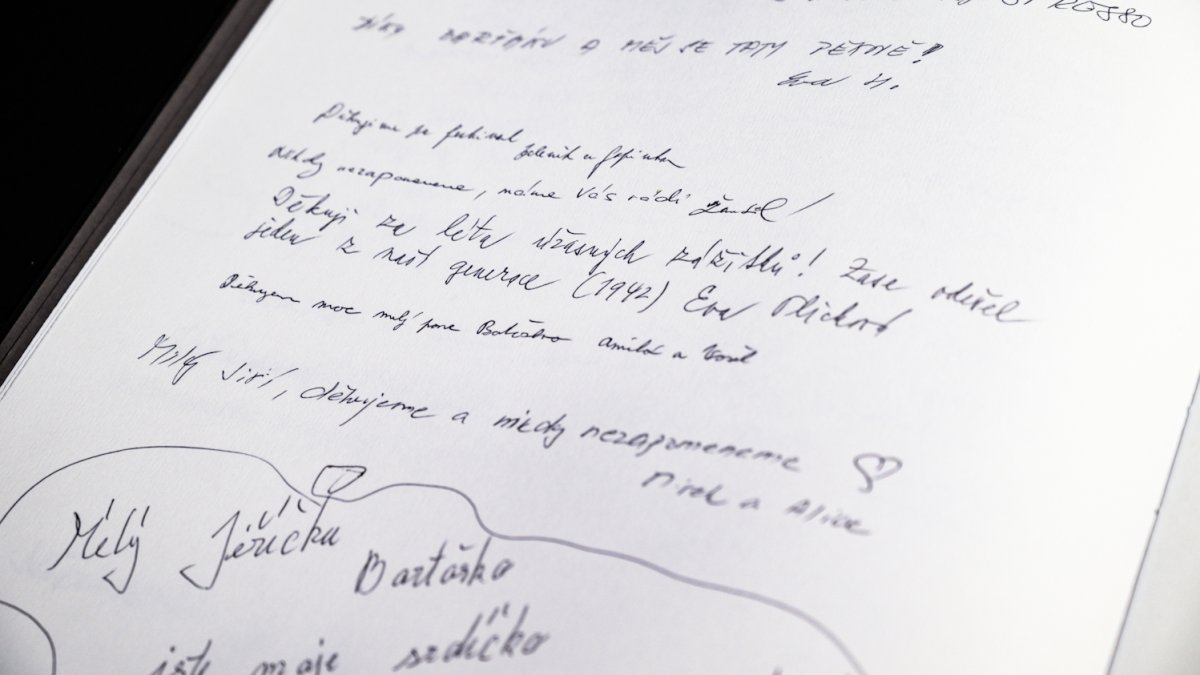 A MĚJ SE TAM PĚKNĚ!
Eva H.
Děkujeme za festival
nikdy nezapomeneme, máme Vás rádi
Děkuji za léta úžasných zážitků! Zase odešel
jeden z naší generace (1942) Eva Plicková
Děkujem moc milý pane Bartoško a
Milý Jiří, děkujeme a nikdy nezapomeneme
Mirek a Alice
Milý Jiříčku
Bartoško
jste moje srdíčko